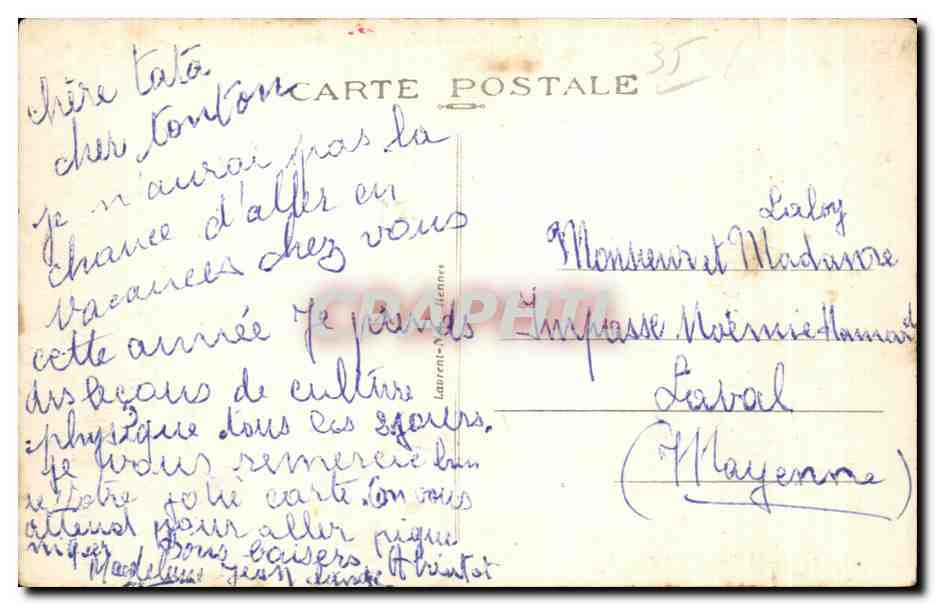 CARTE POSTALE
35
chère tata
cher tonton
je n'aurai pas la
chance d'aller en
vacances chez vous
cette année Je prends
des leçons de culture
physique tous les 2 jours.
je vous remercie bien
de votre jolie carte. On vous
attend pour aller pique
niquer Bons baisers A bientot
Madeleine Jean
Laurent-N
CRAPHTI
Laloy
Monsieur et Madame
Impasse Noëmie Hamard
Laval
(Mayenne)